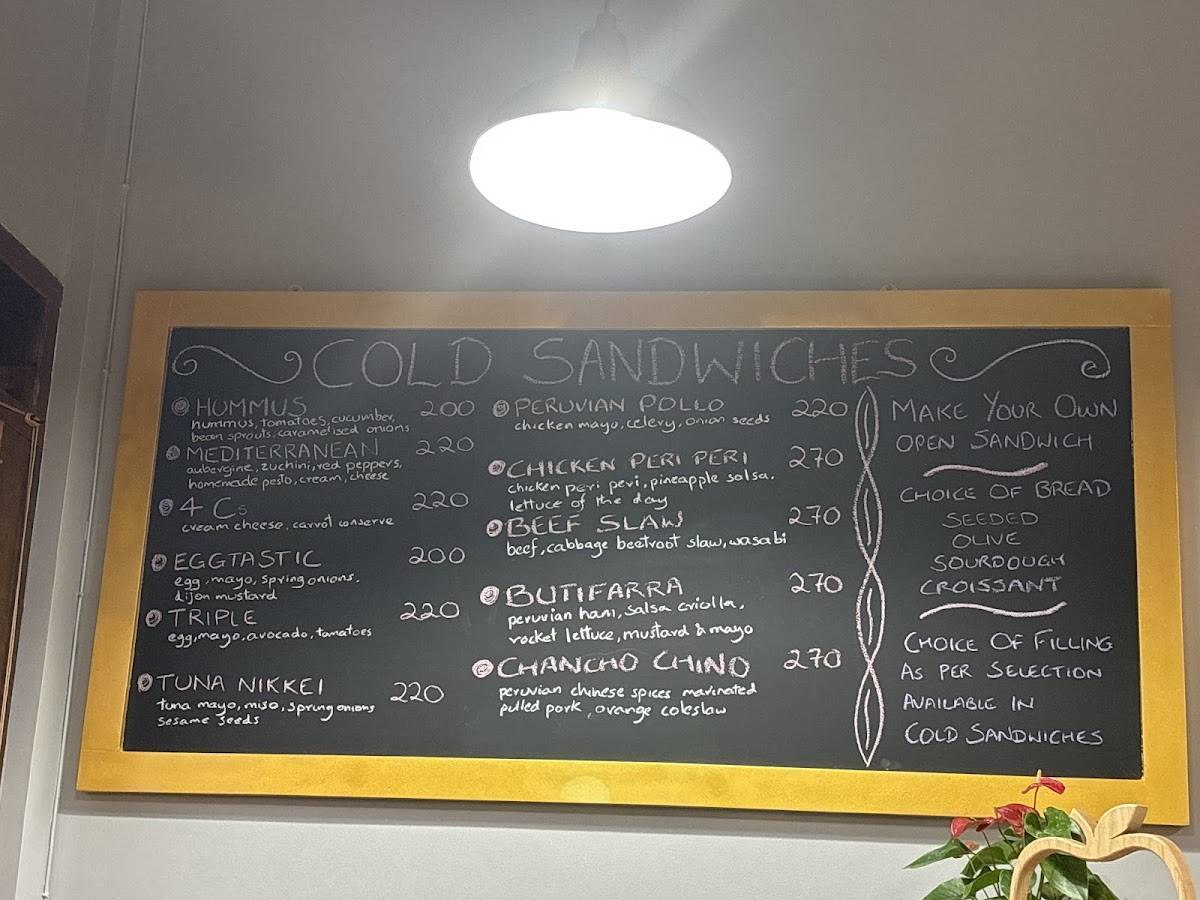 COLD SANDWICHES
HUMMUS 200
hummus, tomatoes, cucumber,
bean sprouts, caramelised onions
MEDITERRANEAN 220
aubergine, zuchini, red peppers,
homemade pesto, cream, cheese
4 Cs 220
cream cheese, carrot conserve
EGGTASTIC 200
egg, mayo, spring onions,
dijon mustard
TRIPLE 220
egg, mayo, avocado, tomatoes
TUNA NIKKEI 220
tuna mayo, miso, spring onions
sesame seeds
PERUVIAN POLLO 220
chicken mayo, celery, onion seeds
CHICKEN PERI PERI 270
chicken peri peri, pineapple salsa.
lettuce of the day
BEEF SLAW 270
beef, cabbage beetroot slaw, wasabi
BUTIFARRA 270
peruvian ham, salsa criolla,
rocket lettuce, mustard & mayo
CHANCHO CHINO 270
peruvian chinese spices marinated
pulled pork, orange coleslaw
MAKE YOUR OWN
OPEN SANDWICH
CHOICE OF BREAD
SEEDED
OLIVE
SOURDOUGH
CROISSANT
CHOICE OF FILLING
AS PER SELECTION
AVAILABLE IN
COLD SANDWICHES